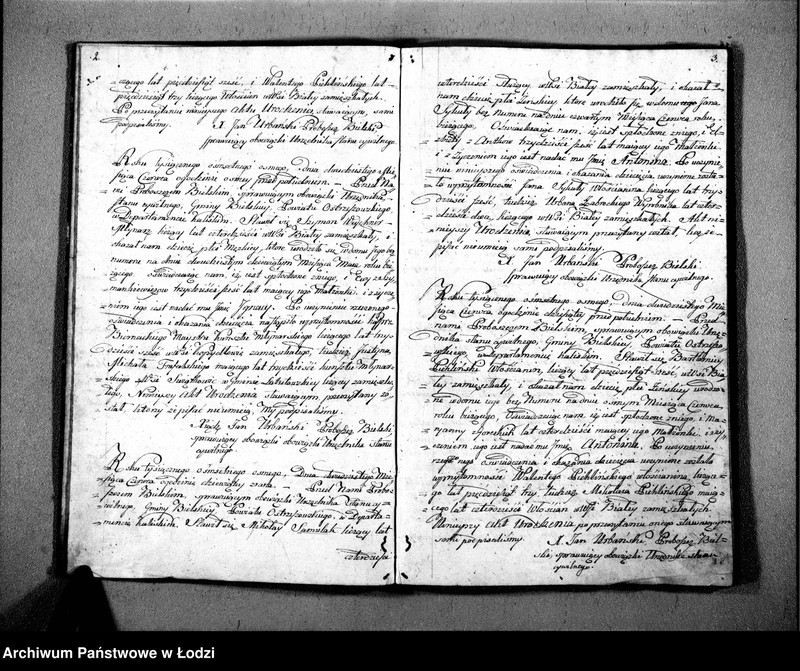 2.
czącego lat pięćdziesiąt sześć, i Walentego Cichlińskiego lat
pięćdziesiąt trzy liczącego Włościan w Wsi Biały zamieszkałych.
Po przeczytaniu niniejszego Aktu Urodzenia stawaiącym, sami
podpisaliśmy.
X. Jan Urbański Proboszcz Bielski
sprawuiący obowiązki Urzędnika Stanu cywilnego.
Roku tysiącznego osmsetnego osmego, Dnia dwudziestego Mie-
siąca Czerwca o godzinie osmey przed południem. — Przed Na-
mi Proboszczem Bielskim, sprawuiącym obowiązki Urzędnika
stanu cywilnego, Gminy Bielskiey, Powiatu Ostrzeszowskiego,
w Departamencie Kaliskim. Stawił się Szymon
Młynarz liczący lat czterdzieści w Wsi Biały zamieszkały, i
okazał nam dziecię płci Męskiey, które urodziło się w domu Jego bez
numeru na dniu dwudziestym dziewiątym Miesiąca Maia roku bie-
żącego. oświadczaiąc nam, iż iest spłodzone z niego, i
lat maiącey iego małżonki, i życze-
niem iego iest nadać mu Jmię Ignacy. Po uczynieniu rzeczonego
oświadczenia i okazania dziecięcia
Biernackiego Maystra Kunsztu Młynarskiego liczącego lat trzy-
dzieści sześć w Wsi zamieszkałego, tudzież Justyna
Michała lat trzydzieści kunsztu Młynar-
skiego w Wsi w Gminie Lututowskiey liczący zamieszka-
łego, Ninieyszy Akt Urodzenia Stawaiącym przeczytany zo-
stał, którzy iż pisać nieumieią, My podpisaliśmy.
Xiądz Jan Urbański Proboszcz Bielski
sprawuiący obowiązki Urzędnika Stanu
cywilnego.
Roku tysiącznego osmsetnego osmego, Dnia dwudziestego Mie-
siąca Czerwca o godzinie dziewiątey zrana. — Przed Nami Probo-
szczem Bielskim, sprawuiącym obowiązki Urzędnika Stanu cy-
wilnego, Gminy Bielskiey, Powiatu Ostrzeszowskiego, w Departa-
mencie Kaliskim. Stawił się Mikołay Samulak liczący lat
czterdzieści
3.
czterdzieści Służący w Wsi Biały zamieszkały, i okazał
nam dziecię płci Żeńskiey które urodziło się w domu iego Jana
Sykuły bez Numeru na dniu czwartym Miesiąca Czerwca roku
bieżącego. Oświadczaiąc nam, iż iest spłodzone z niego, i El-
żbiety z lat maiącey iego Małżonki
i życzeniem iego iest nadać mu Jmię Antonina. Po uczynie-
niu ninieyszego oświadczenia i okazania dziecięcia, uczynione zosta-
ło w przytomności Jana Sykuły Włościanina liczącego lat trzy-
dzieści sześć, tudzież Urbana Wyrobnika lat czter-
dzieści dwa, liczącego w Wsi Biały zamieszkałych. Akt ni-
nieyszy Urodzenia stawaiącym przeczytany został, lecz że
pisać nieumieią sami podpisaliśmy.
X. Jan Urbański Proboszcz Bielski
sprawuiący obowiązki Urzędnika Stanu cywilnego.
Roku tysiącznego osmsetnego osmego, dnia dwudziestego Mie-
siąca Czerwca, o godzinie dziesiątey przed południem. — Przed
nami Proboszczem Bielskim, sprawuiącym obowiązki Urzę-
dnika stanu cywilnego, Gminy Bielskiey Powiatu Ostrzeszo-
wskiego, w Departamencie Kaliskim. Stawił się Bartłomiey
Cichliński Włościanin, liczący lat pięćdziesiąt sześć, w Wsi Bia-
ły zamieszkały, i okazał nam dziecię płci Żeńskiey urodzo-
ne w domu iego bez Numeru na dniu osmym Miesiąca Czerwca
roku bieżącego, Oświadczaiąc nam, iż iest spłodzone z niego, i Ma-
ryanny lat czterdzieści maiącey iego Małżonki, i ży-
czeniem iego iest nadać mu Jmię Antonina. Po uczynieniu
oświadczenia i okazania dziecięcia uczynione zostało
w przytomności Walentego Cichlińskiego Włościanina, liczące-
go lat pięćdziesiąt trzy tudzież Mikołaia Cichlińskiego maią-
cego lat czterdzieści Włościan w Wsi Biały zamieszkałych.
Ninieyszy Akt Urodzenia po przeczytaniu onego stawaiącym
sami podpisaliśmy.
X. Jan Urbański Proboszcz Biel-
ski, sprawuiący obowiązki Urzędnika stanu
cywilnego.
Archiwum Państwowe w Łodzi